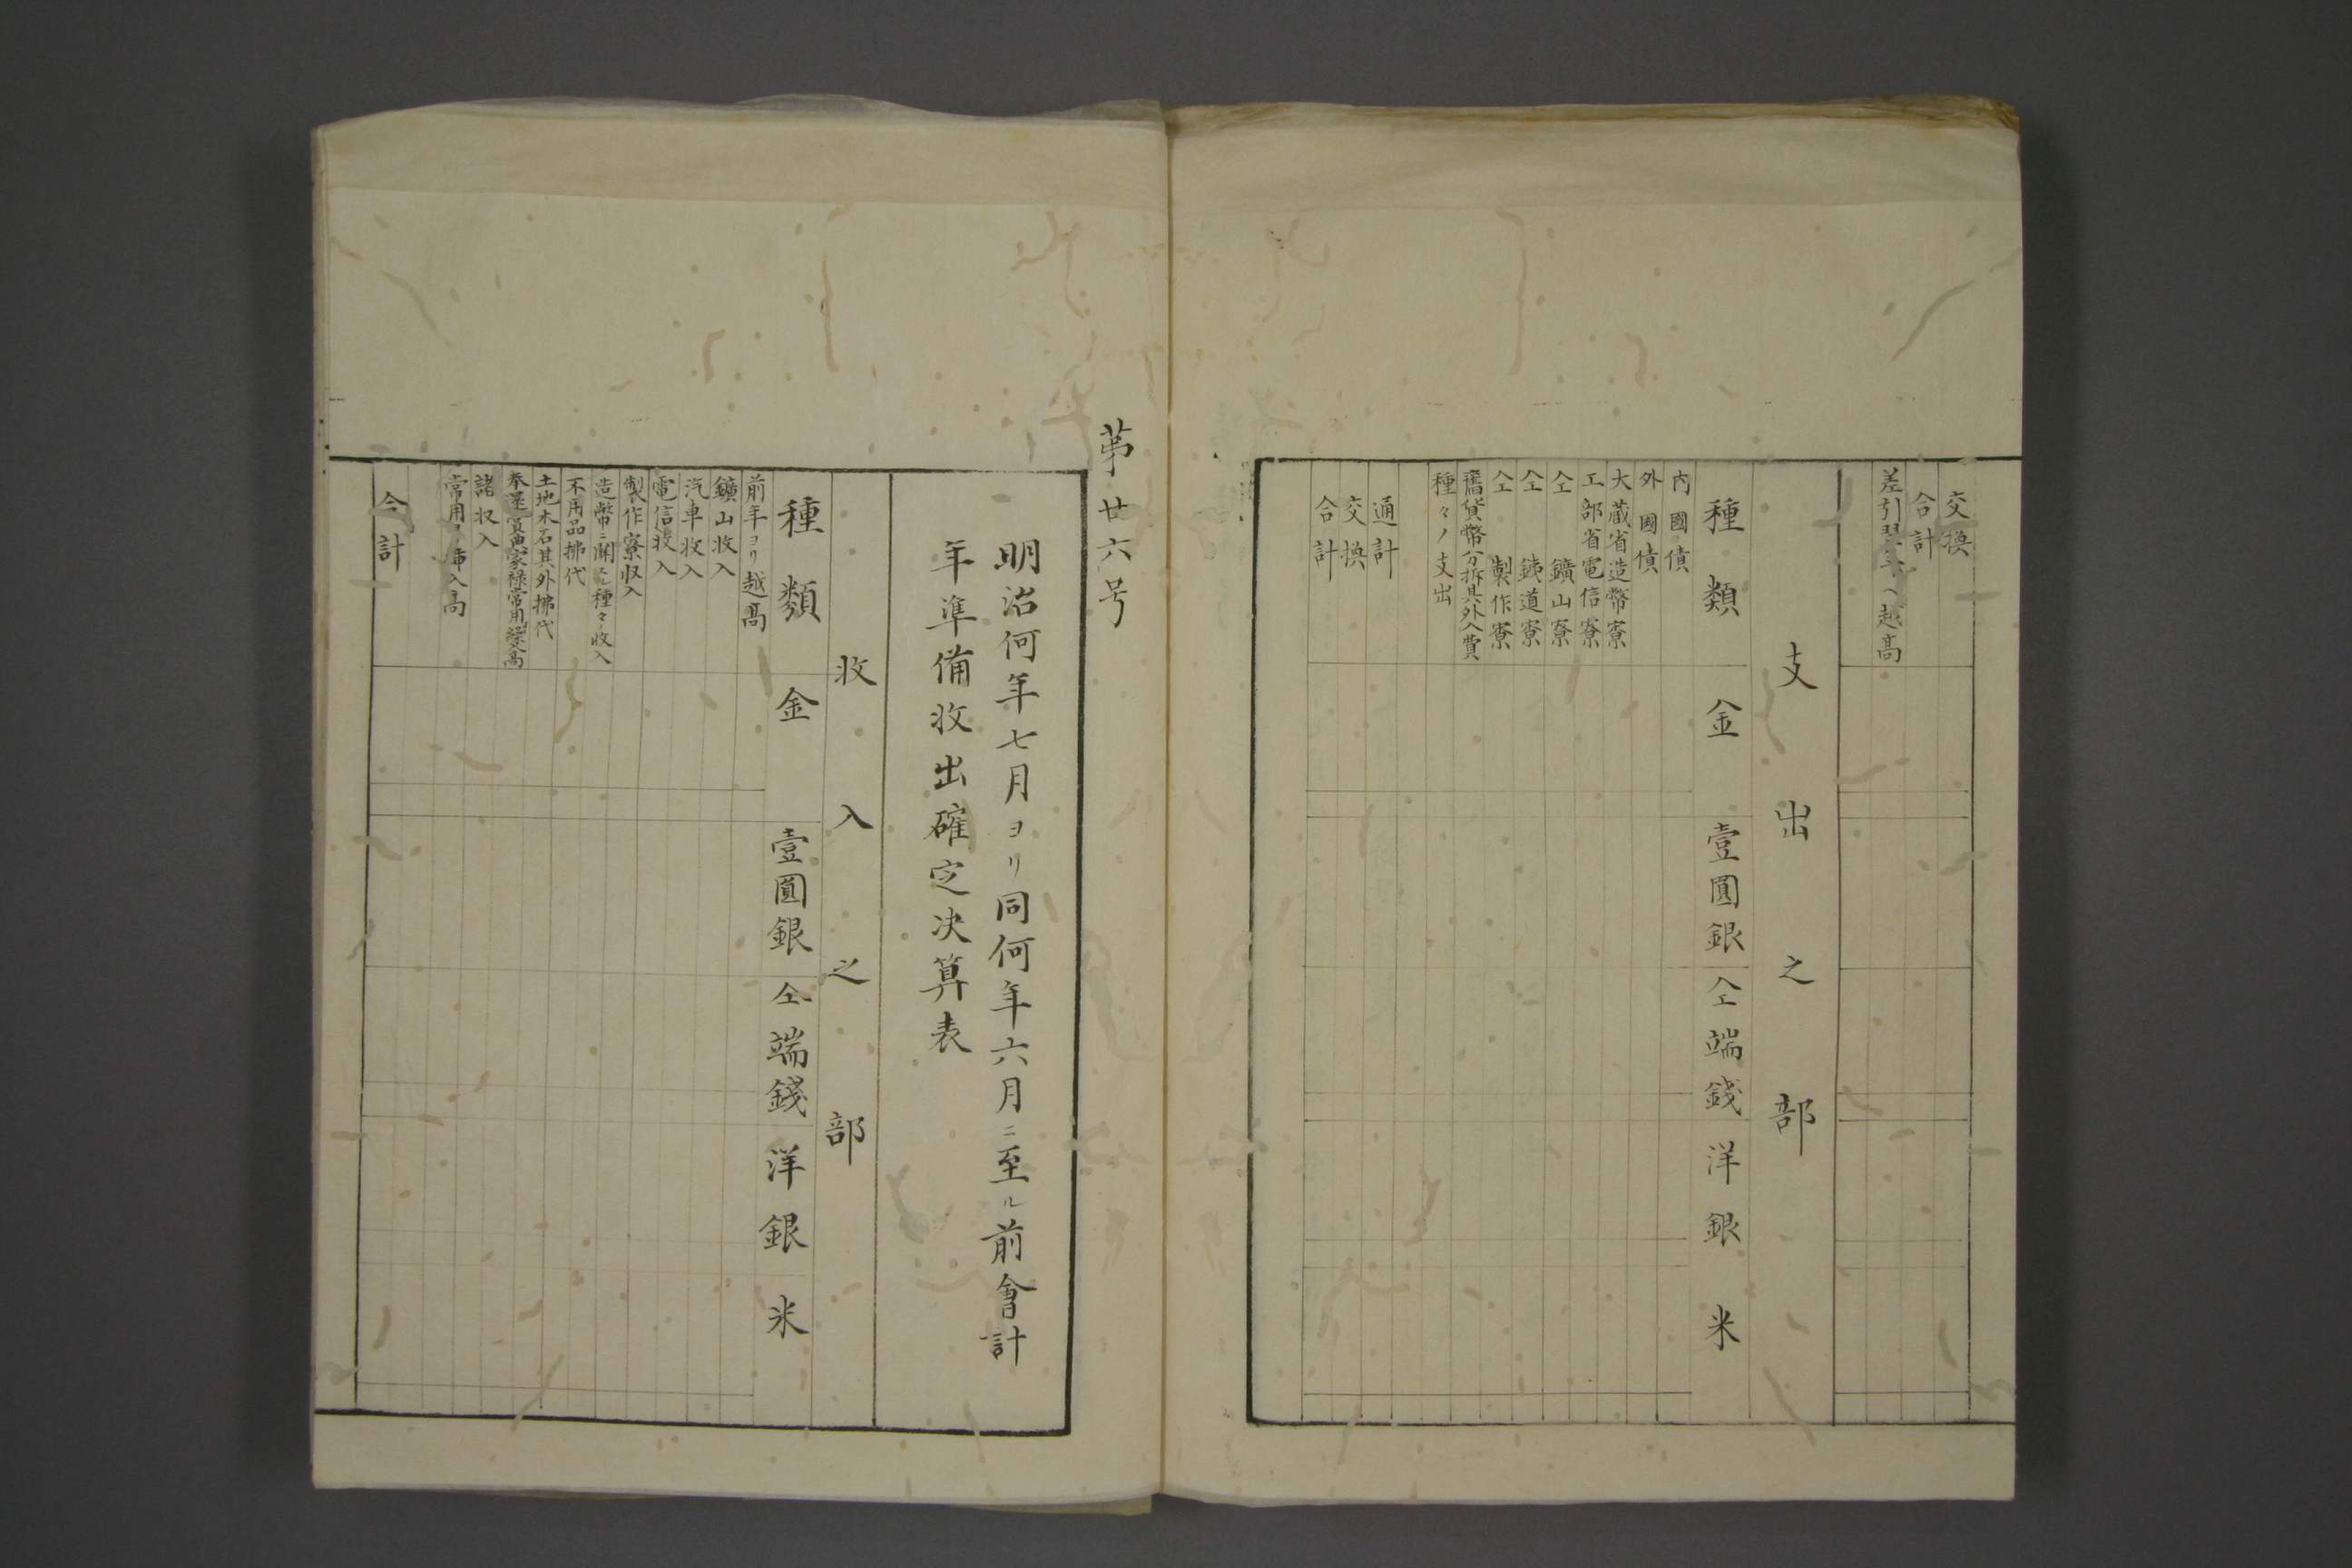 交換
合計
差引翌年ヘ越髙
支出之部
種類 金 壹圓銀 仝端錢 洋銀 米
内國債
外國債
大蔵省造幣寮
工部省電信寮
仝 鑛山寮
仝 鉄道寮
仝 製作寮
舊貨幣分拆其外入費
種々ノ支出
通計
交換
合計
第廿六号
明治何年七月ヨリ同何年六月ニ至ル前會計
年準備收出確定决算表
收入之部
種類 金 壹圓銀 仝端錢 洋銀 米
前年ヨリ越髙
鑛山收入
汽車收入
電信收入
製作寮収入
造幣ニ関スル種々收入
不用品拂代
土地木石其外拂代
奉還資金家禄常用繰替髙
諸収入
常用ヨリ歸入髙
合計